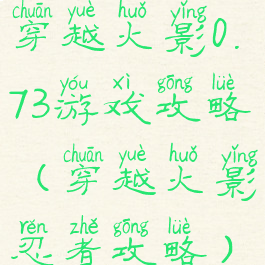 chuān yuè huǒ yǐng
穿越火影0.
yóu xì gōng lüè
73游戏攻略
chuān yuè huǒ yǐng
(穿越火影
rěn zhě gōng lüè
忍者攻略)